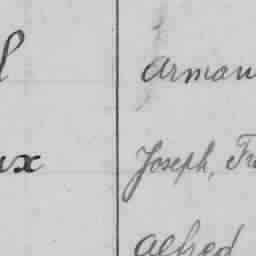 l Arman
ux Joseph, Fr
Alfred